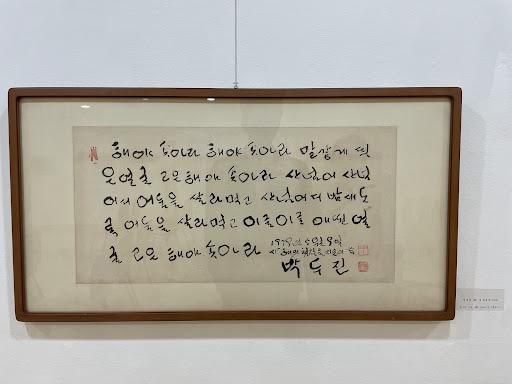 해야 솟아라 해야 솟아라 말갛게 씻
은 얼굴 고운 해야 솟아라 산 넘어 산 넘
어서 어둠을 살라먹고 산 넘어서 밤새도
록 어둠을 살라먹고 이글이글 애띤 얼
굴 고운 해야 솟아라
박두진